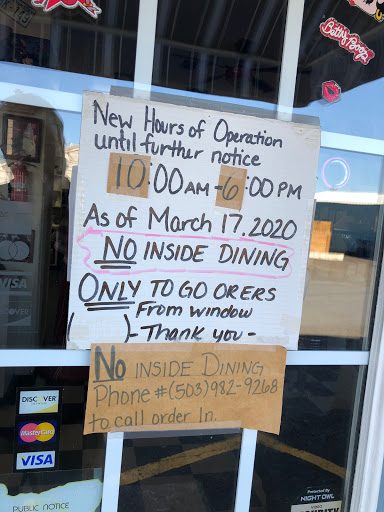 Betty Boop
New Hours of Operation
until further notice
10:00 AM - 6:00 PM
As of March 17, 2020
NO INSIDE DINING
ONLY TO GO ORERS
From window
( )-Thank you-
No INSIDE DINING
Phone #(503)982-9268
to call order In.
VISA
DISCOVER
MasterCard
VISA
PUBLIC NOTICE
Protected By
NIGHT OWL